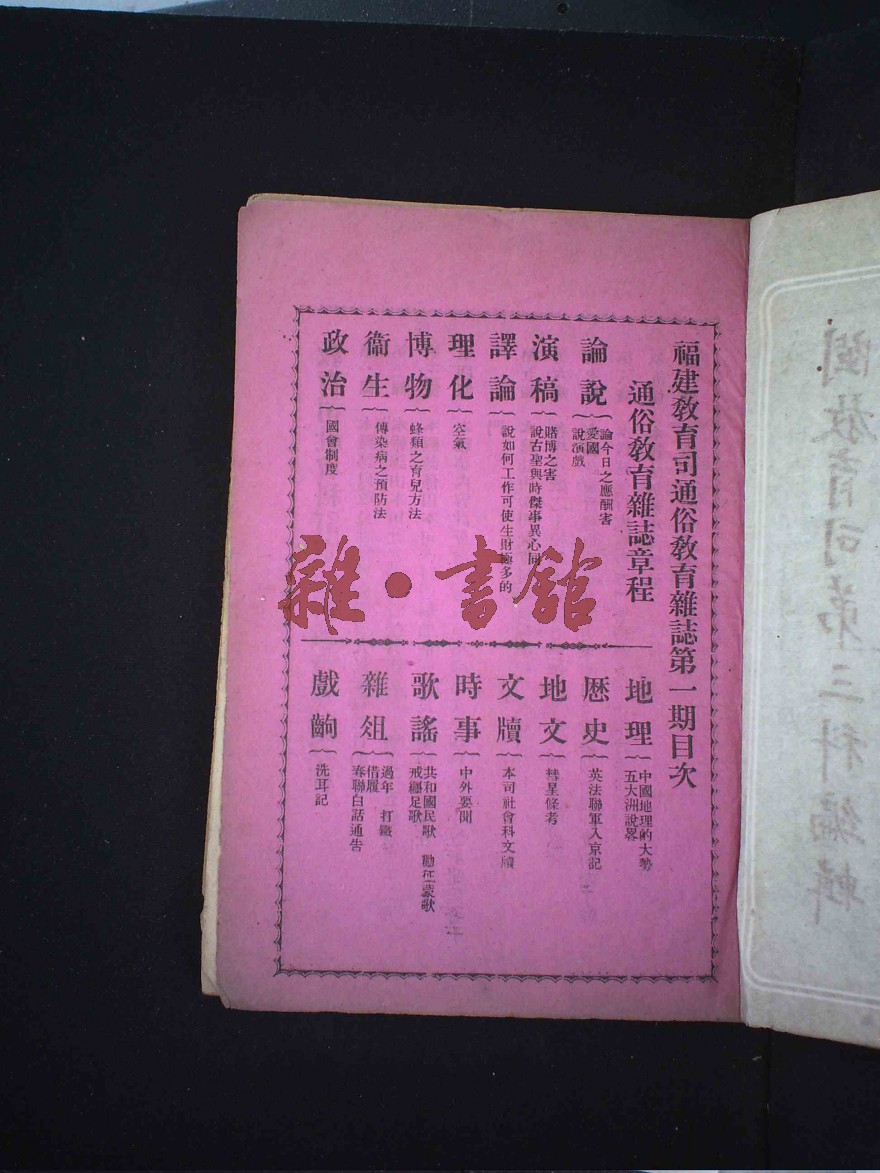 福建敎育司通俗敎育雜誌第一期目次
通俗敎育雜誌章程
論說
論今日之應酬害
愛國
說演戲
演稿
賭博之害
說古聖與時傑事異心同
譯論
說如何工作可使生財極多的
理化
空氣
博物
蜂類之育兒方法
衞生
傳染病之預防法
政治
國會制度
地理
中國地理的大勢
五大洲說畧
歷史
英法聯軍入京記
地文
彗星條考
文牘
本司社會科文牘
時事
中外要聞
歌謠
共和國民歌 勸征蒙歌
戒纏足歌
雜俎
過年 打鐵
借屐
春聯白話通告
戲齣
洗耳記
閩教育司第三科編輯
雜·書館